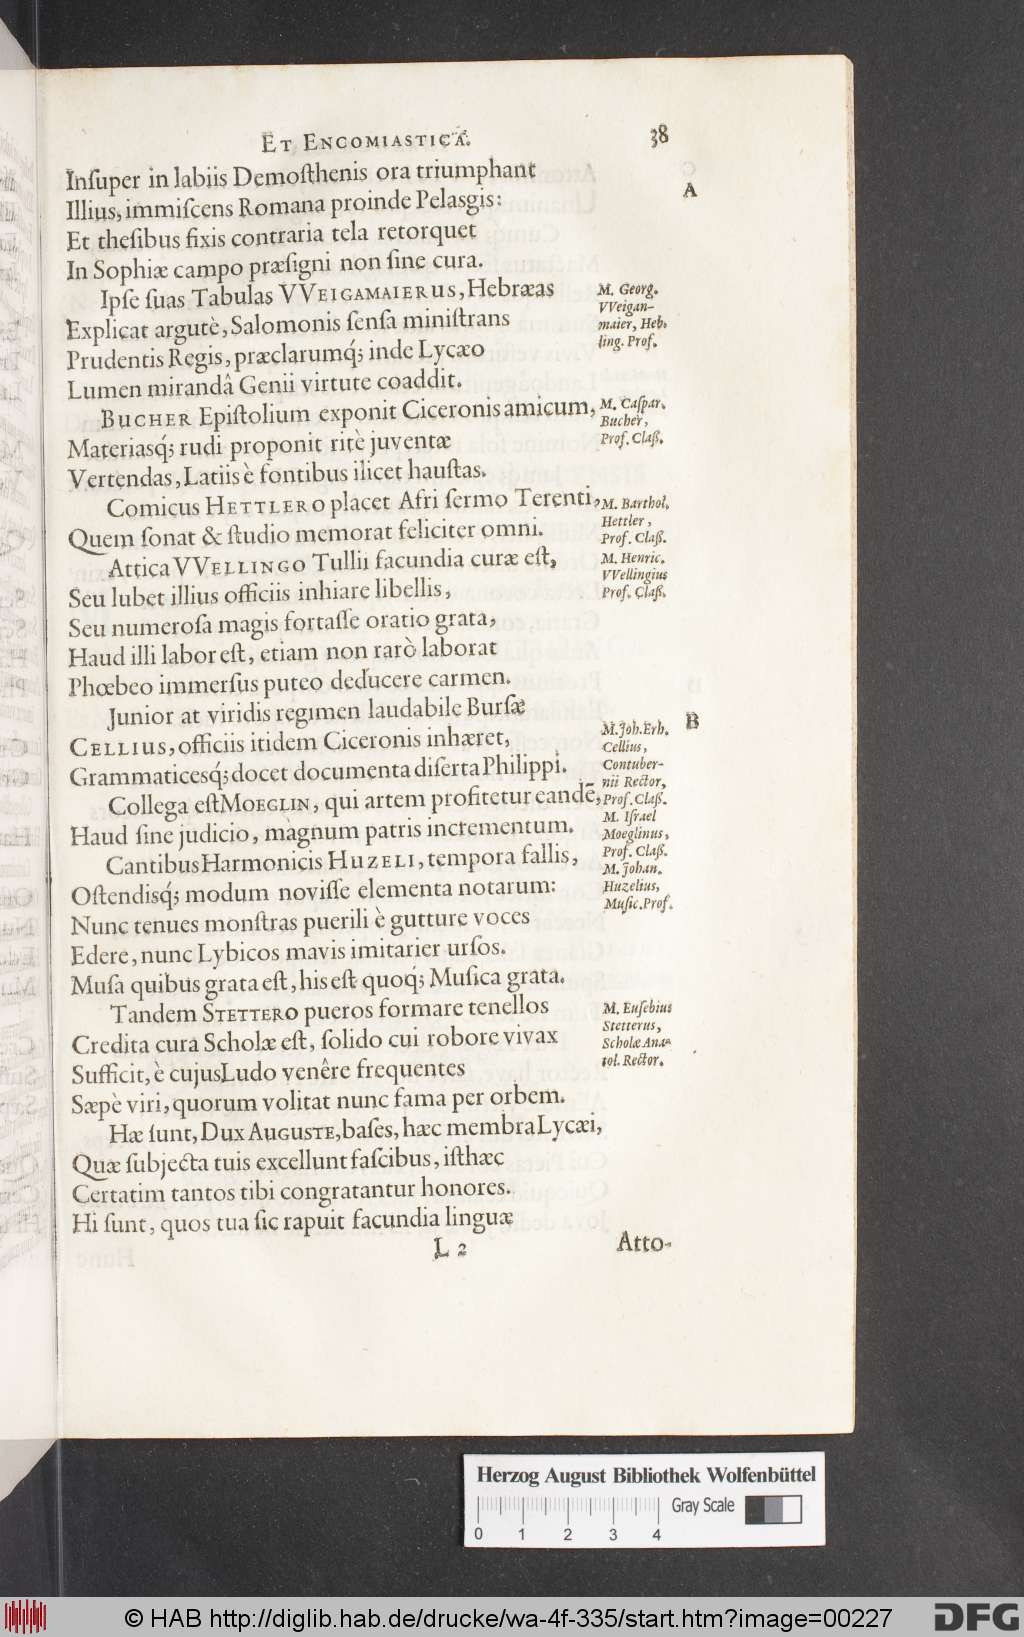 ET ENCOMIASTICA. 38
A
Inſuper in labiis Demoſthenis ora triumphant
Illius, immiſcens Romana proinde Pelasgis:
Et theſibus fixis contraria tela retorquet
In Sophiæ campo præſigni non ſine cura.
Ipſe ſuas Tabulas VVEIGAMAIERUS, Hebræas
Explicat argutè, Salomonis ſenſa miniſtrans
Prudentis Regis, præclarumq́; inde Lycæo
Lumen mirandâ Genii virtute coaddit.
M. Georg.
VVeigan-
maier, Heb.
ling. Prof.
BUCHER Epiſtolium exponit Ciceronis amicum,
Materiasq́; rudi proponit ritè juventæ
Vertendas, Latiis è fontibus ilicet hauſtas.
M. Caſpar.
Bucher,
Prof. Claſſ.
Comicus HETTLERO placet Afri ſermo Terenti,
Quem ſonat & ſtudio memorat feliciter omni.
M. Barthol.
Hettler,
Prof. Claſſ.
Attica VVELLINGO Tullii facundia curæ eſt,
Seu lubet illius officiis inhiare libellis,
Seu numeroſa magis fortaſſe oratio grata,
Haud illi labor eſt, etiam non rarò laborat
Phœbeo immerſus puteo deducere carmen.
M. Henric.
VVellingius
Prof. Claſſ.
B
Junior at viridis regimen laudabile Burſæ
CELLIUS, officiis itidem Ciceronis inhæret,
Grammaticesq́; docet documenta diſerta Philippi.
M. Joh. Erh.
Cellius,
Contuber-
nii Rector,
Prof. Claſſ.
Collega eſt MOEGLIN, qui artem profitetur eandē,
Haud ſine judicio, magnum patris incrementum.
M. Iſrael
Moeglinus,
Prof. Claſſ.
Cantibus Harmonicis HUZELI, tempora fallis,
Oſtendisq́; modum noviſſe elementa notarum:
Nunc tenues monſtras puerili è gutture voces
Edere, nunc Lybicos mavis imitarier urſos.
Muſa quibus grata eſt, his eſt quoq́; Muſica grata.
M. Johan.
Huzelius,
Muſic. Prof.
Tandem STETTERO pueros formare tenellos
Credita cura Scholæ eſt, ſolido cui robore vivax
Sufficit, è cujus Ludo venêre frequentes
Sæpè viri, quorum volitat nunc fama per orbem.
M. Euſebius
Stetterus,
Scholæ Ana-
tol. Rector.
Hæ ſunt, Dux AUGUSTE, baſes, hæc membra Lycæi,
Quæ ſubjecta tuis excellunt faſcibus, iſthæc
Certatim tantos tibi congratantur honores.
Hi ſunt, quos tua ſic rapuit facundia linguæ
L 2 Atto-
Herzog August Bibliothek Wolfenbüttel
Gray Scale
0 1 2 3 4
© HAB http://diglib.hab.de/drucke/wa-4f-335/start.htm?image=00227
DFG